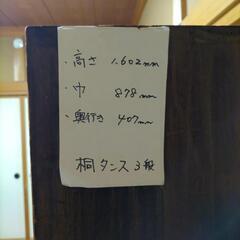 ・高さ 1.602mm
・巾 878mm
・奥行き 407mm
桐タンス3段